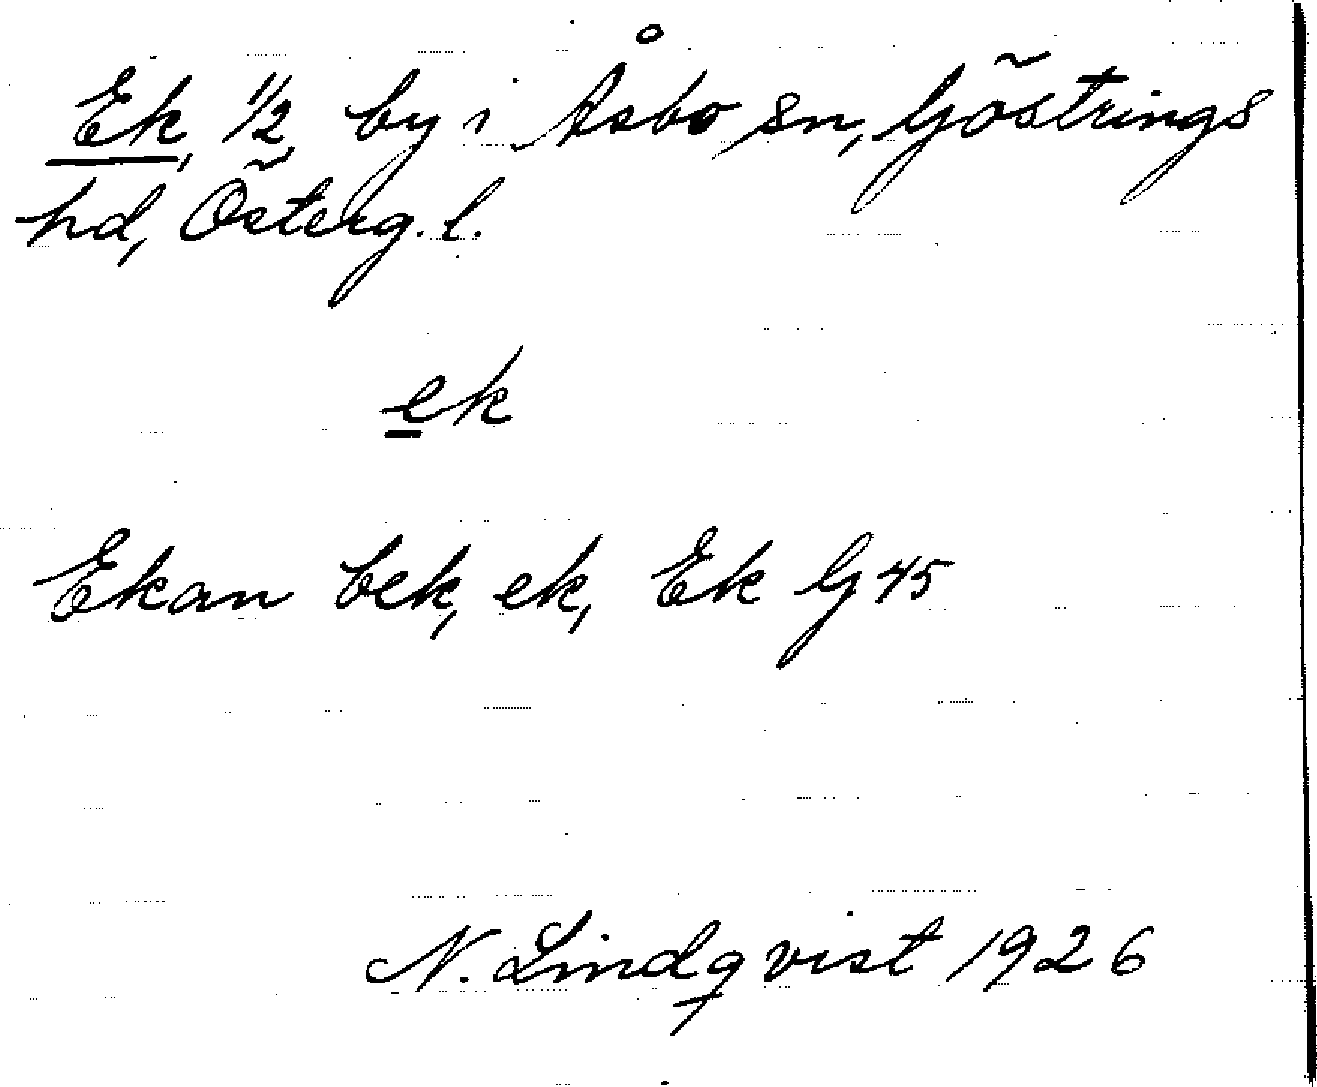 Ek, 1/2, by i Åsbo sn, Göstrings
hd, Österg. l.
ek
Ekan bek, ek, Ek G 45
N. Lindqvist 1926